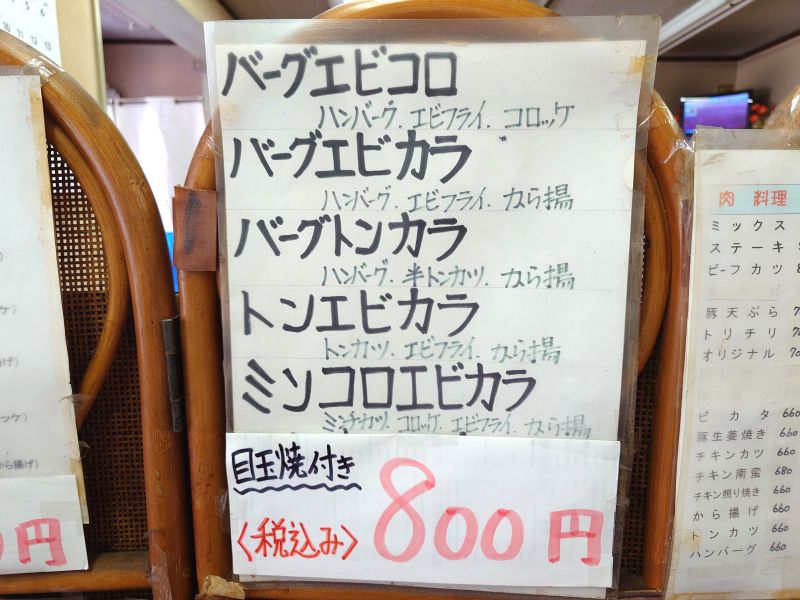 バーグエビコロ
ハンバーグ. エビフライ. コロッケ
バーグエビカラ
ハンバーグ. エビフライ. から揚
バーグトンカラ
ハンバーグ. 半トンカツ. から揚
トンエビカラ
トンカツ. エビフライ. から揚
ミンコロエビカラ
ミンチカツ. コロッケ. エビフライ. から揚
目玉焼付き
〈税込み〉800円
円
肉 料理
ミックス
ステーキ
ビーフカツ
豚天ぷら
トリチリ
オリジナル
ピカタ 660
豚生姜焼き 660
チキンカツ 660
チキン南蛮 680
チキン照り焼き 660
から揚げ 660
トンカツ 660
ハンバーグ 660